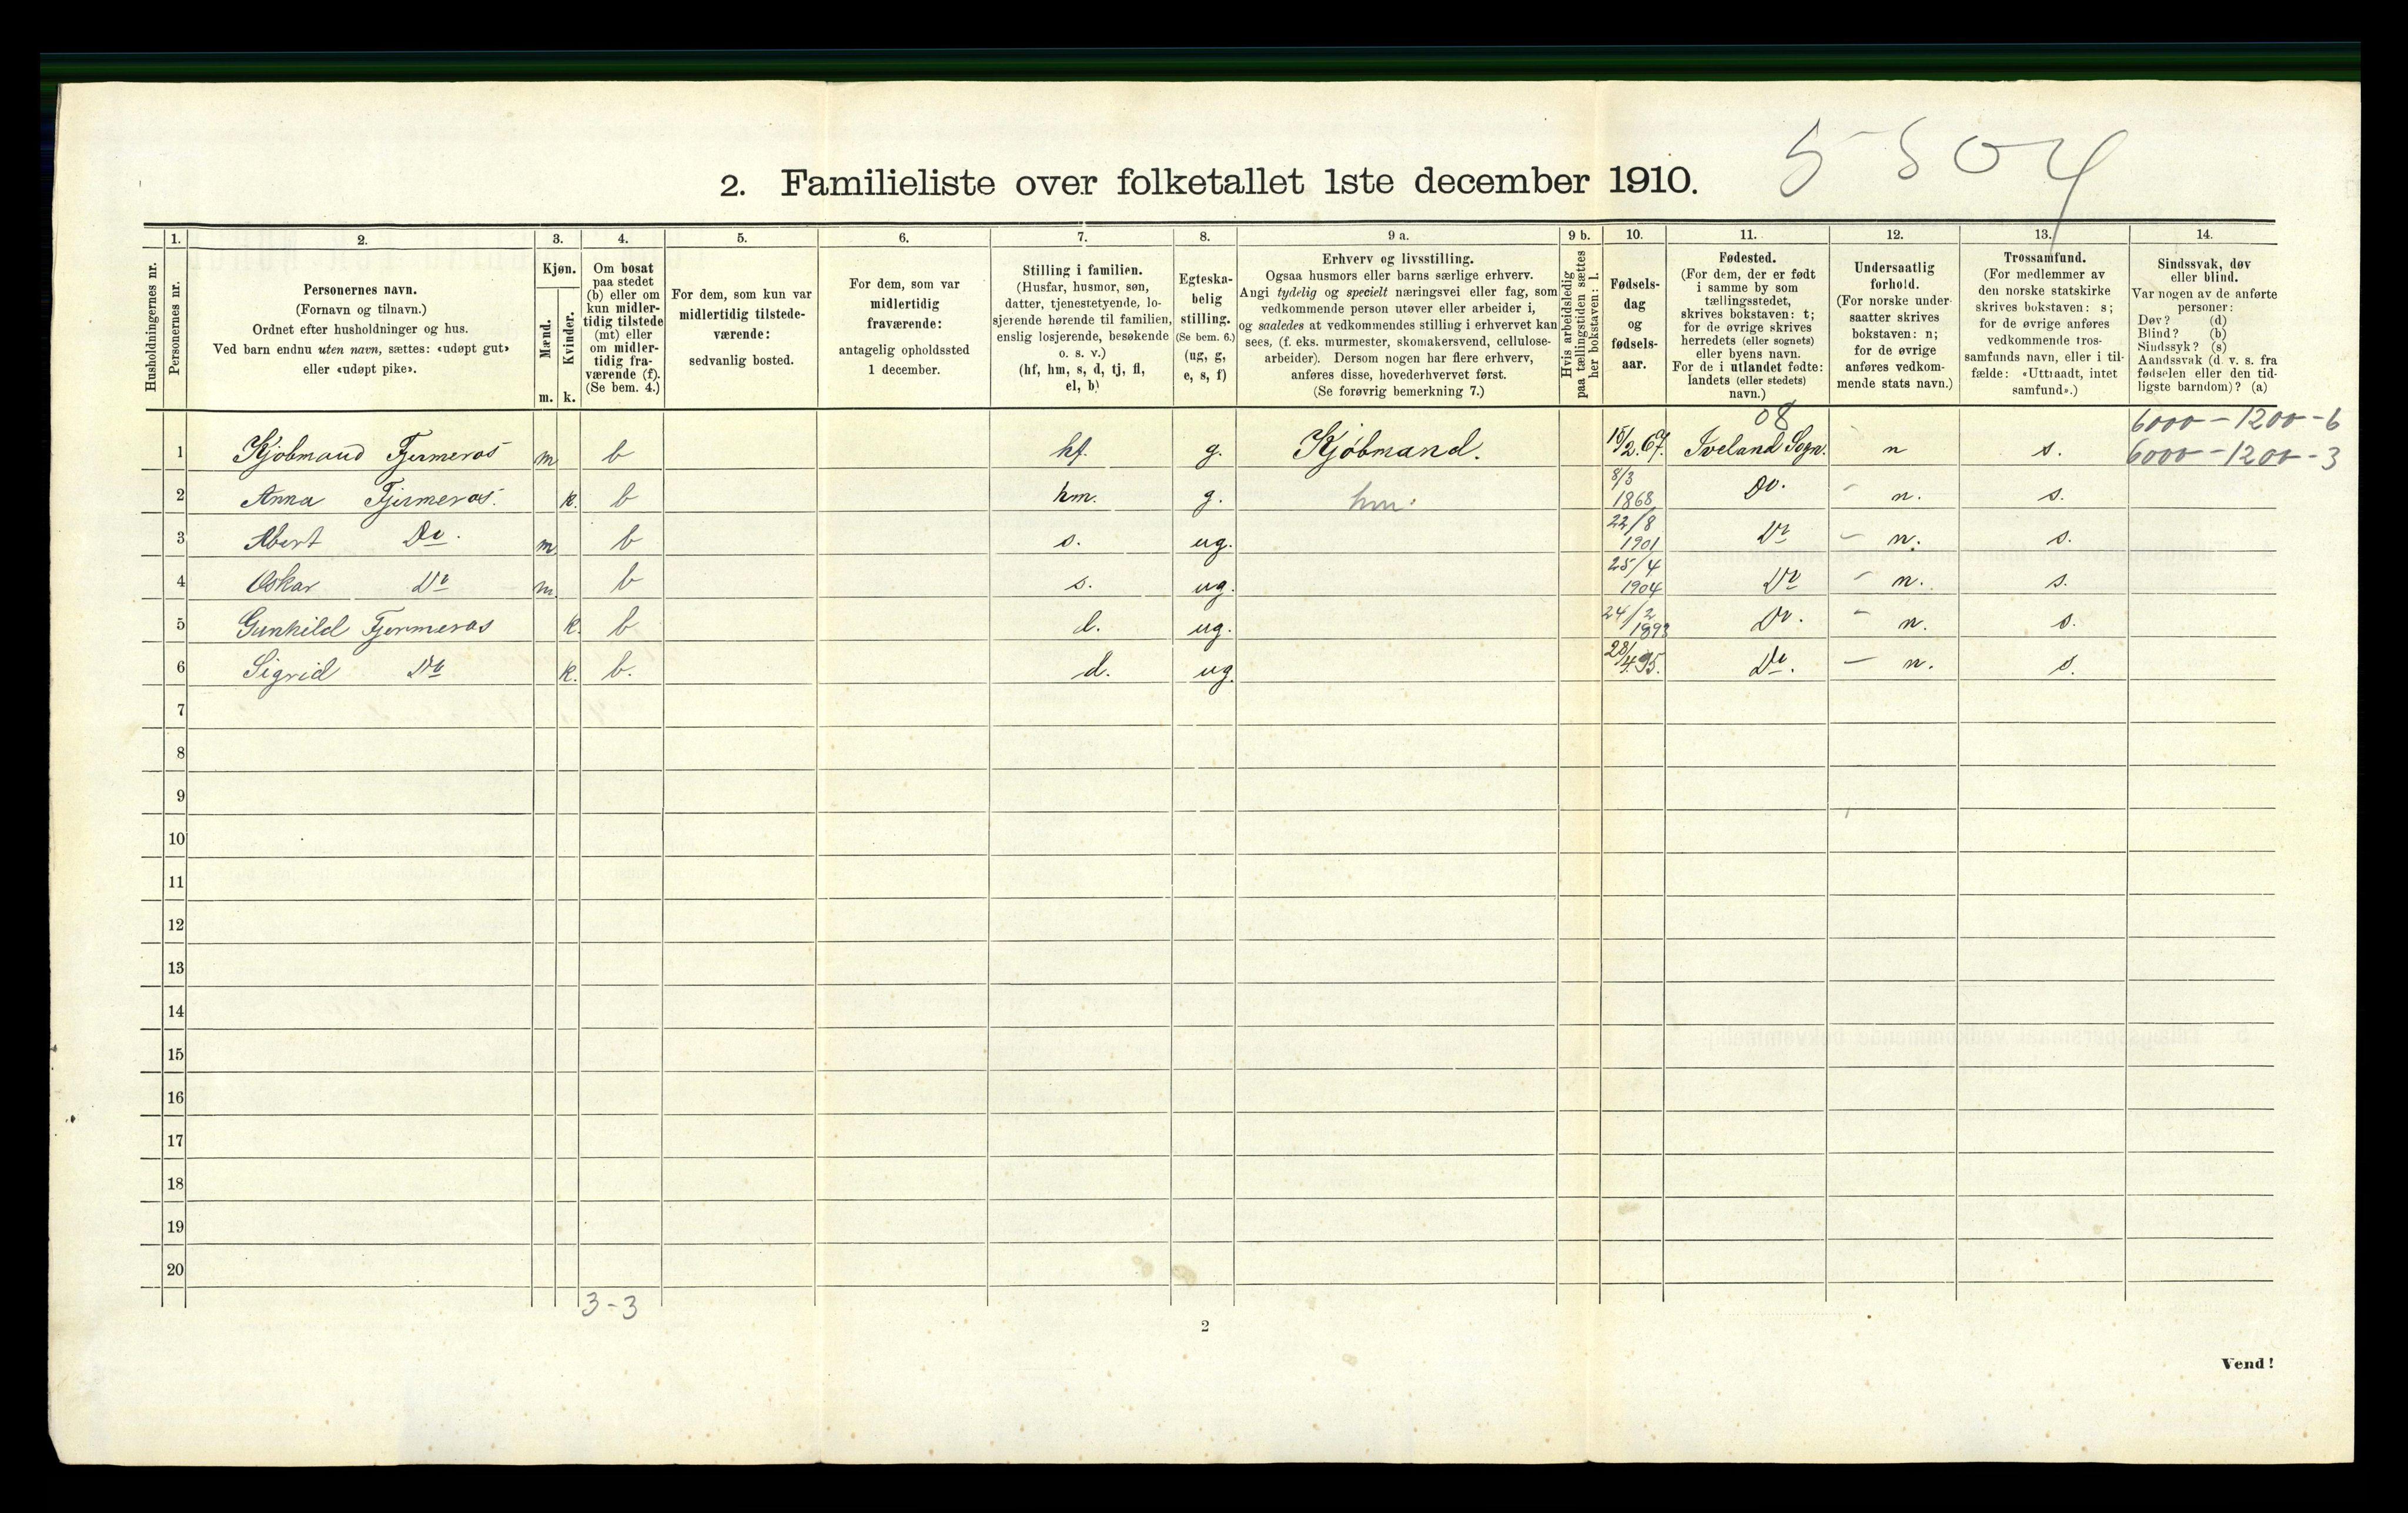 5504
2. Familieliste over folketallet 1ste december 1910.
1. 2. 3. 4. 5. 6. 7. 8. 9 a. 9 b. 10. 11. 12. 13. 14.
Husholdningernes nr.
Personernes nr.
Personernes navn.
(Fornavn og tilnavn.)
Ordnet efter husholdninger og hus.
Ved barn endnu uten navn, sættes: «udøpt gut»
eller «udøpt pike».
Kjøn.
Mænd.
Kvinder.
m. k.
Om bosat
paa stedet
(b) eller om
kun midler-
tidig tilstede
(mt) eller
om midler-
tidig fra-
værende (f).
(Se bem. 4.)
For dem, som kun var
midlertidig tilstede-
værende:
sedvanlig bosted.
For dem, som var
midlertidig
fraværende:
antagelig opholdssted
1 december.
Stilling i familien.
(Husfar, husmor, søn,
datter, tjenestetyende, lo-
sjerende hørende til familien,
enslig losjerende, besøkende
o. s. v.)
(hf, hm, s, d, tj, fl,
el, b)
Egteska-
belig
stilling.
(Se bem. 6.)
(ug, g,
e, s, f)
Erhverv og livsstilling.
Ogsaa husmors eller barns særlige erhverv.
Angi tydelig og specielt næringsvei eller fag, som
vedkommende person utøver eller arbeider i,
og saaledes at vedkommendes stilling i erhvervet kan
sees, (f. eks. murmester, skomakersvend, cellulose-
arbeider). Dersom nogen har flere erhverv,
anføres disse, hovederhvervet først.
(Se forøvrig bemerkning 7.)
Hvis arbeidsledig
paa tællingstiden sættes
her bokstaven: l.
Fødsels-
dag
og
fødsels-
aar.
Fødested.
(For dem, der er født
i samme by som
tællingsstedet,
skrives bokstaven: t;
for de øvrige skrives
herredets (eller sognets)
eller byens navn.
For de i utlandet fødte:
landets (eller stedets)
navn.)
Undersaatlig
forhold.
(For norske under-
saatter skrives
bokstaven: n;
for de øvrige
anføres vedkom-
mende stats navn.)
Trossamfund.
(For medlemmer av
den norske statskirke
skrives bokstaven: s;
for de øvrige anføres
vedkommende tros-
samfunds navn, eller i til-
fælde: «Uttraadt, intet
samfund».)
Sindssvak, døv
eller blind.
Var nogen av de anførte
personer:
Døv? (d)
Blind? (b)
Sindssyk? (s)
Aandssvak (d. v. s. fra
fødselen eller den tid-
ligste barndom)? (a)
08 6000-1200-6
1 Kjøbmand Fjermeros m b hf. g. Kjøbmand. 15/2.67. Iveland Sogn. n s. 6000-1200-3
2 Anna Fjermeros. k. b hm. g. hm. 8/3 1868 Do. - n. s.
3 Abert Do. m b s. ug. 22/8 1901 Do - n. s.
4 Oskar Do m. b s. ug. 25/4 1904 Do - n. s.
5 Gunhild Fjermeros k. b d. ug. 24/2 1893 Do. - n. s.
6 Sigrid Do k. b. d. ug. 28/4.95. Do. - n. s.
7
8
9
10
11
12
13
14
15
16
17
18
19
20
3-3
2
Vend!